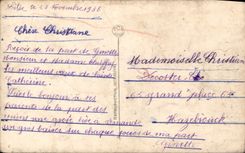 Lille le 23 Novembre 1938
Chère Christiane
Reçois de la part de Ginette
Monsieur et Madame
les meilleurs vœux de bonne
Catherine.
bonjour à ses
parents de la part des
une grosse bise à
un gros baiser sur chaque joues de ma part
Ginette
Mademoiselle Christiane
65 grand'place 65
Hazebrouck